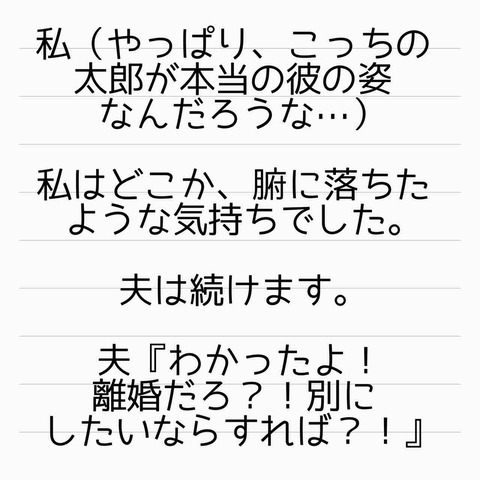 私（やっぱり、こっちの
太郎が本当の彼の姿
なんだろうな…）
私はどこか、腑に落ちた
ような気持ちでした。
夫は続けます。
夫『わかったよ！
離婚だろ？！別に
したいならすれば？！』